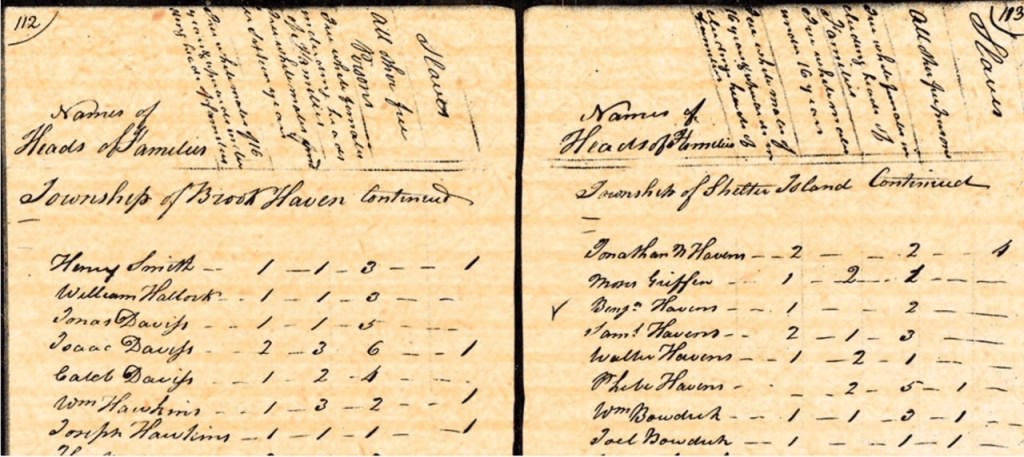 112
Names of
Heads of Families
Free white males of 16
years & upwards including
heads of families
Free white males
under sixteen years
Free white females
including heads
of families
All other free
Persons
Slaves
Township of Brook Haven Continued
Henry Smith -- 1 -- 1 -- 3 -- -- 1
William Hallock -- 1 -- 1 -- 3 -- --
Jonas Daviss -- 1 -- 1 -- 5 -- --
Isaac Daviss -- 2 -- 3 -- 6 -- -- 1
Caleb Daviss -- 1 -- 2 -- 4 -- --
Wm Hawkins -- 1 -- 3 -- 2 -- -- 1
Joseph Hawkins -- 1 -- 1 -- 1 -- -- 1
113
Names of
Heads of Families
Free white males of
16 years & upwards in
cluding heads of
families
Free white males
under 16 years
Free white females in
cluding heads of
Families
All other free persons
Slaves
Township of Shelter Island Continued
Jonathan N Havens -- 2 -- -- 2 -- -- 4
Moses Griffen -- 1 -- 2 -- 1 -- --
Benjn Havens -- 1 -- -- 2 -- --
Saml Havens -- 2 -- 1 -- 3 -- --
Walter Havens -- 1 -- 2 -- 1 -- --
Phebe Havens -- -- 2 -- 5 -- 1 --
Wm Bowditch -- 1 -- 1 -- 3 -- 1
Joel Bowditch -- 1 -- -- 1 -- 1 --